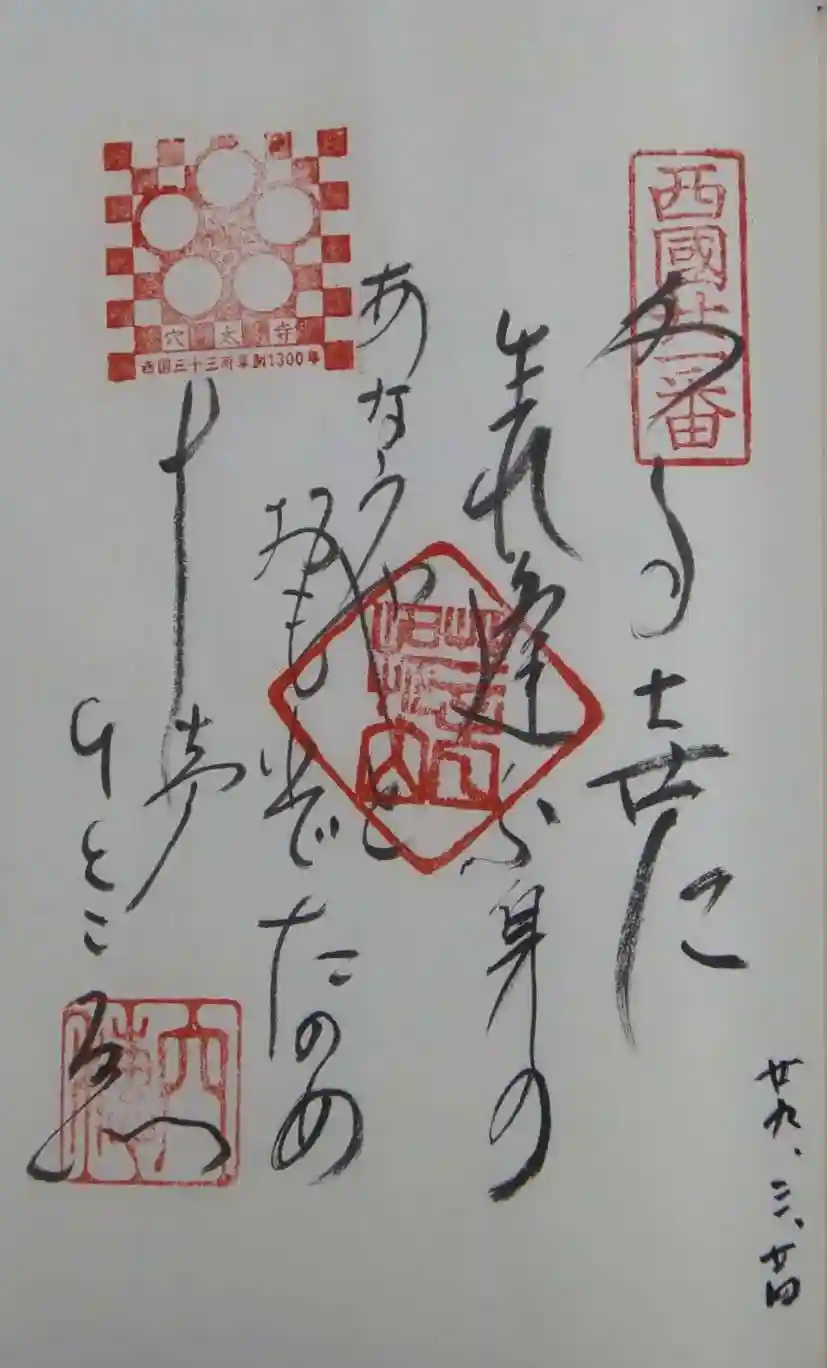 西國廿一番
かゝる世に
生れ逢ふ身の
あなうやと
おもはでたのめ
十声
ひとこゑ
穴太寺
西国三十三所草創1300年
廿九、三、廿四